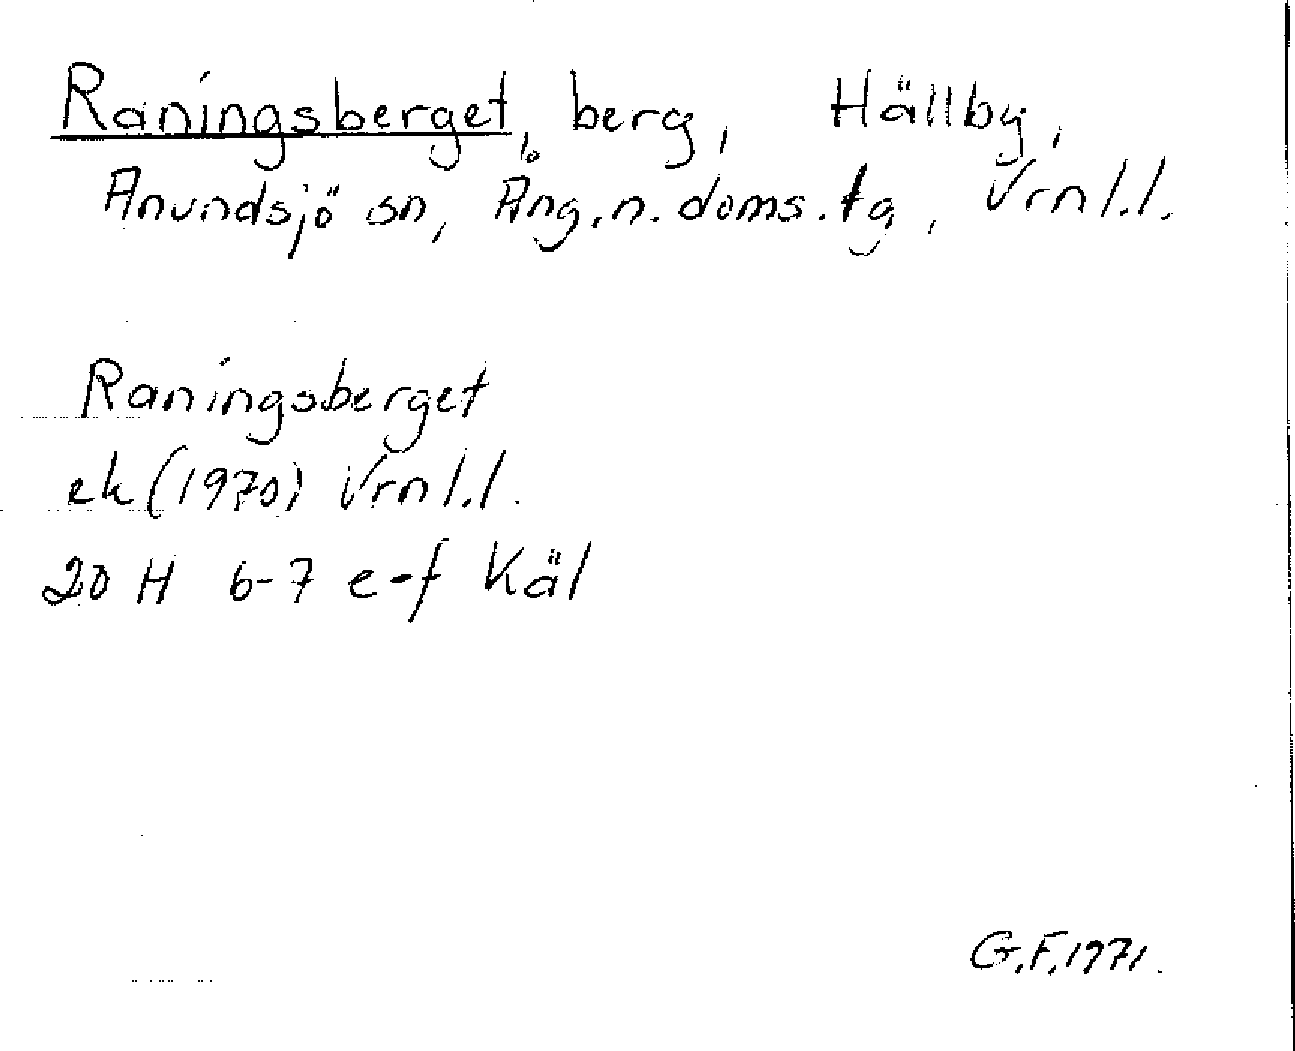 Raningsberget, berg, Hällby,
Anundsjö sn, Ång.n.doms.tg, Vrnl.l.
Raningsberget
ek (1970) Vrnl.l.
20 H 6-7 e-f Käl
G.F. 1971.